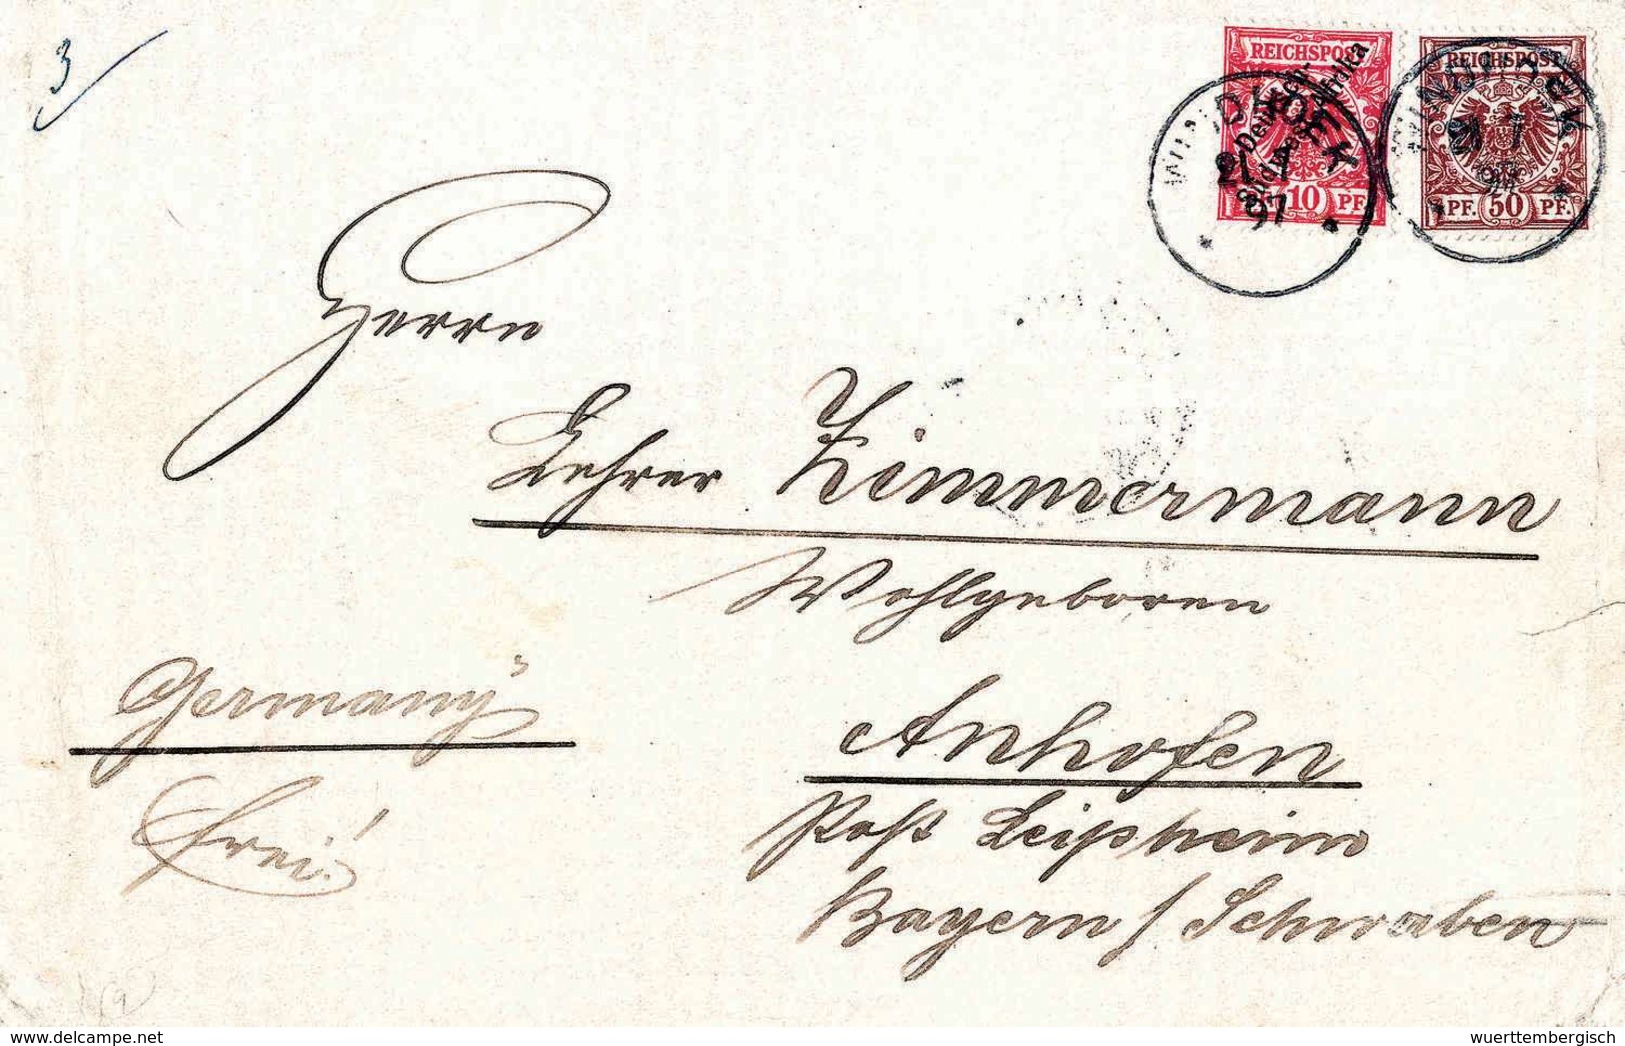 3
REICHSPOST
Deutsch-
Südwest-Afrika
10 PF.
REICHSPOST
PF. 50 PF.
WINDHOEK
21.7
97
WINDHOEK
Herrn
Lehrer Zimmermann
Wohlgeboren
Germany
Frei!
Anhofen
Post Leipheim
Bayern / Schwaben
wuerttembergisch